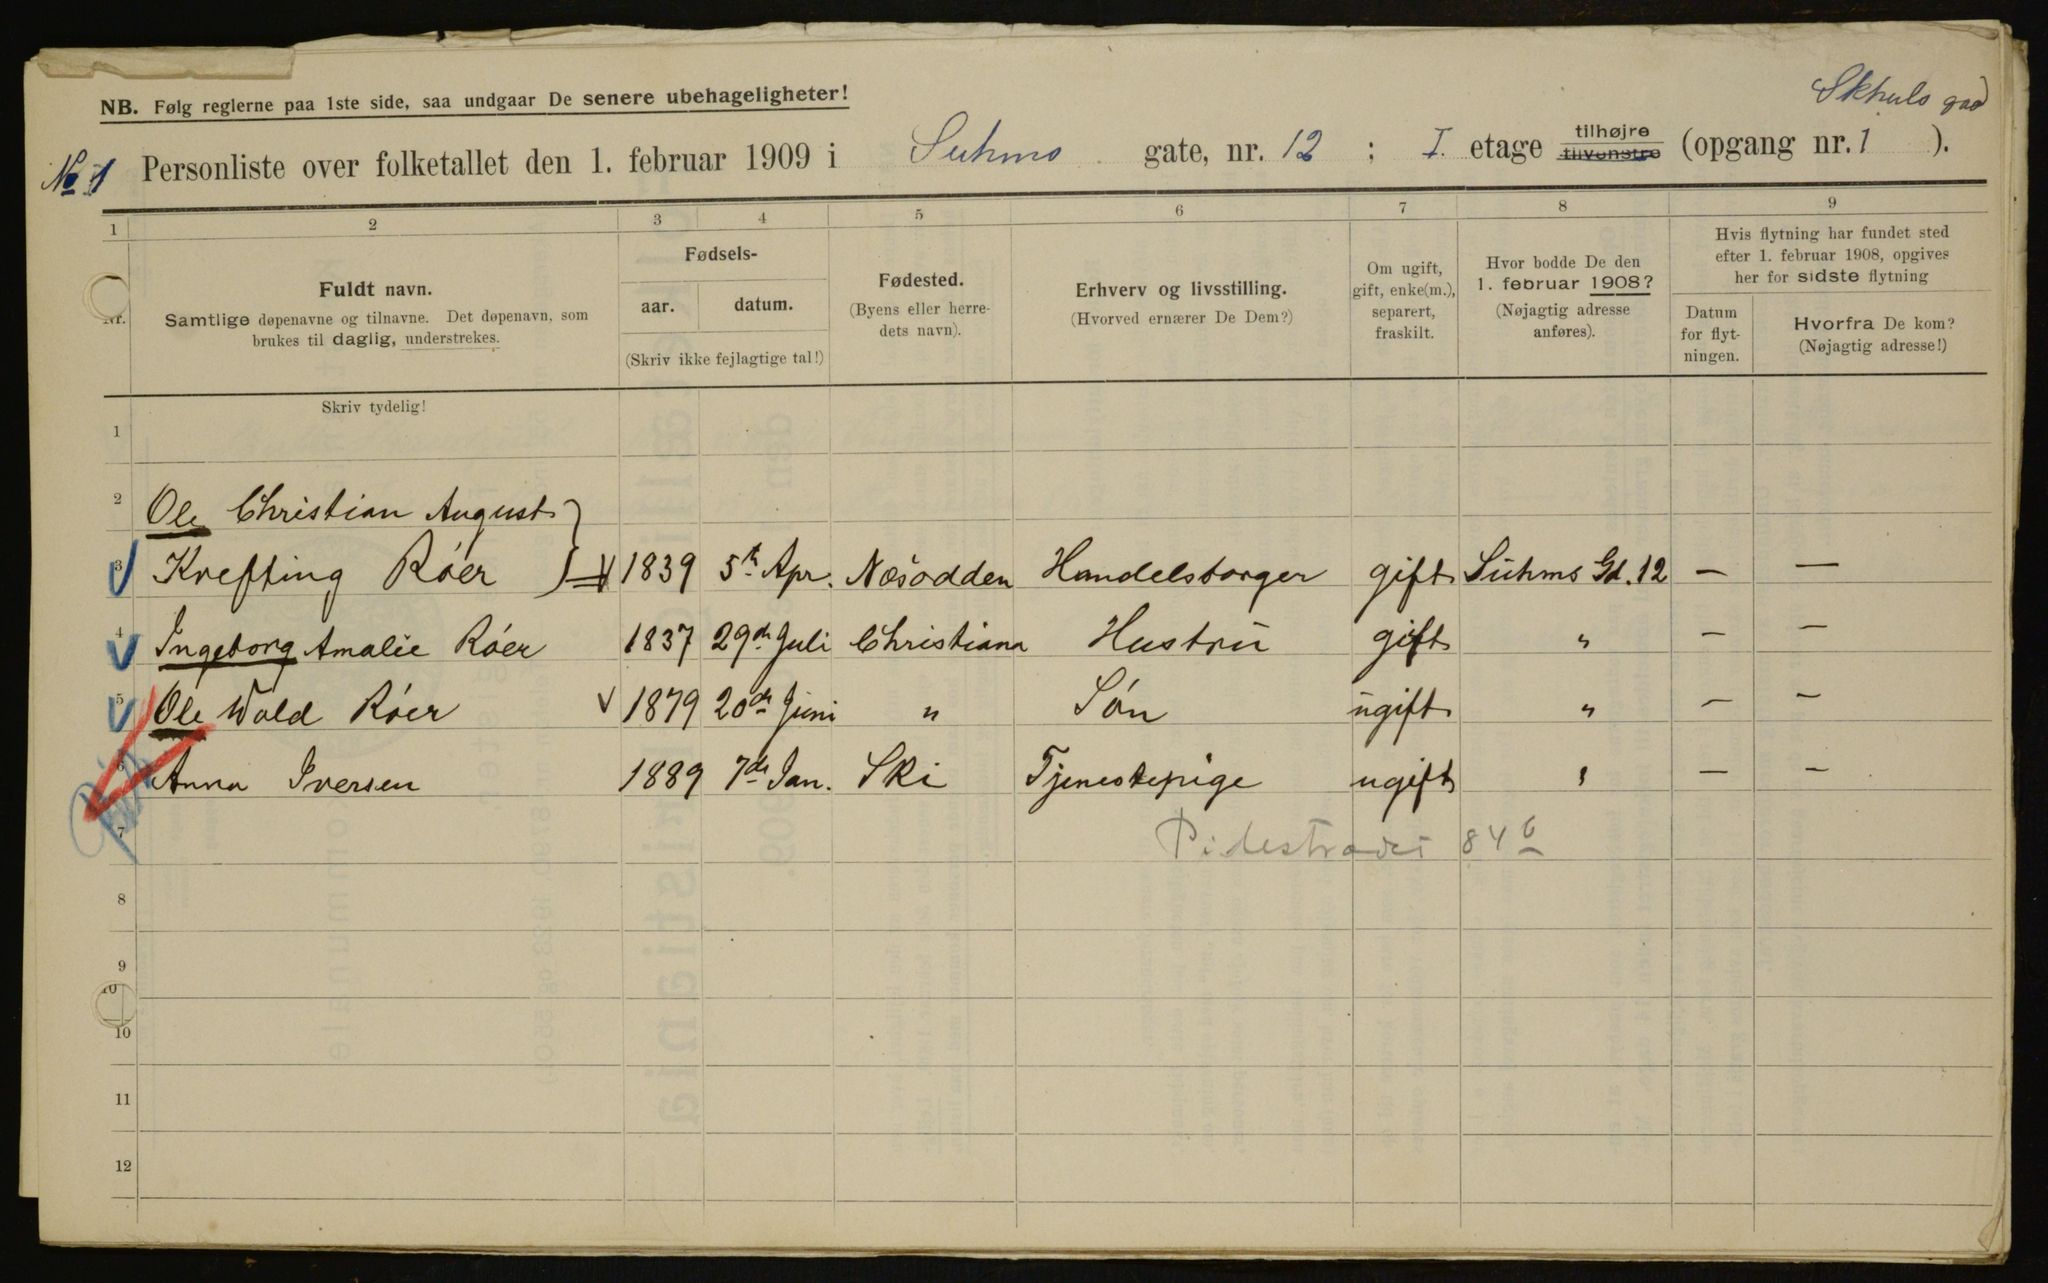 Skhuls gad
NB. Følg reglerne paa 1ste side, saa undgaar De senere ubehageligheter!
No 1 Personliste over folketallet den 1. februar 1909 i Suhms gate, nr. 12 ; I. etage tilhøjre tilvenstre (opgang nr. 1 ).
1 2 3 4 5 6 7 8 9
Nr.
Fuldt navn.
Samtlige døpenavne og tilnavne. Det døpenavn, som
brukes til daglig, understrekes.
Fødsels-
aar. datum.
(Skriv ikke fejlagtige tal!)
Fødested.
(Byens eller herre-
dets navn).
Erhverv og livsstilling.
(Hvorved ernærer De Dem?)
Om ugift,
gift, enke(m.),
separert,
fraskilt.
Hvor bodde De den
1. februar 1908?
(Nøjagtig adresse
anføres).
Hvis flytning har fundet sted
efter 1. februar 1908, opgives
her for sidste flytning
Datum
for flyt-
ningen.
Hvorfra De kom?
(Nøjagtig adresse!)
Skriv tydelig!
1
2 Ole Christian August
3 Krefting Róer 1839 5te Apr. Næsodden Handelsborger gift Suhms Gd. 12 — —
4 Ingeborg Amalie Róer 1837 29de Juli Christiana Hustru gift " — —
5 Ole Wold Róer 1879 20de Juni " Són ugift " — —
6 Anna Iversen 1889 7de Jan. Ski Tjenestepige ugift " — —
7 Pilestrædet 84 b
8
9
10
10
11
12